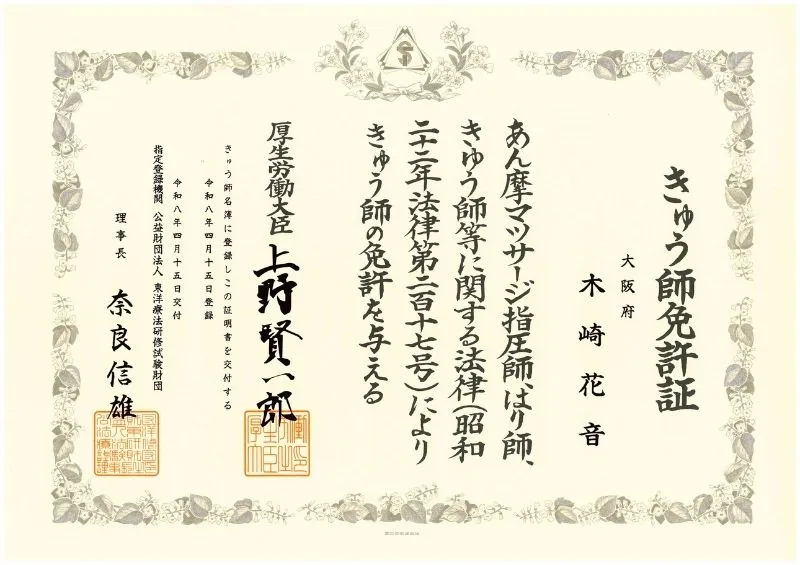 きゅう師免許証
大阪府
木崎花音
あん摩マツサージ指圧師、はり師、
きゆう師等に関する法律(昭和
二十二年法律第二百十七号)により
きゅう師の免許を与える
厚生労働大臣 上野賢一郎
きゅう師名簿に登録しこの証明書を交付する
令和八年四月十五日登録
令和八年四月十五日交付
指定登録機関 公益財団法人 東洋療法研修試験財団
理事長 奈良信雄